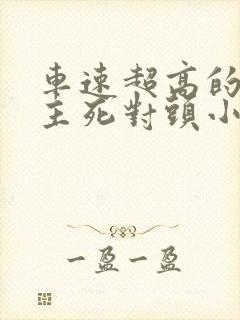 車速超高的
主死對頭小
一盈一盈